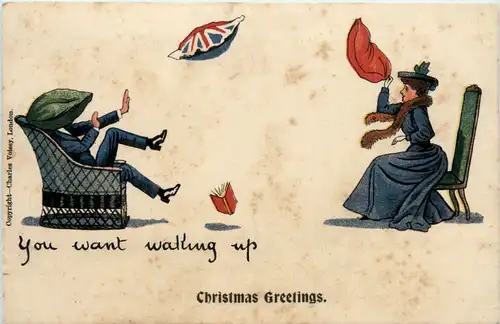 Copyright—Charles Voisey, London.
You want waking up
Christmas Greetings.